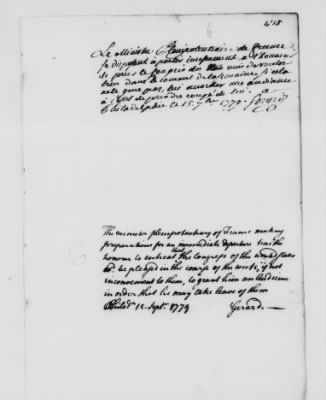 415
Le Ministre Plenipotentiaire de france
se disposant a partir incessamment a l'honneur
de prier le Congrès des Etats unis de vouloir
bien dans le courant de la semaine, si cela
ne le gene pas, lui accorder une audience
à l'effet de prendre congé de lui. a
Philadelphie le 15. 7bre 1779. Gerard
The minister plenipotentiary of France making
preparations for an immediate departure has the
honour to entreat the Congress of the united States
that be pleased in the course of the week, if not
inconvenient to them, to grant him an Audience
in order that he may take leave of them
Philada 15 Sept. 1779
Gerard